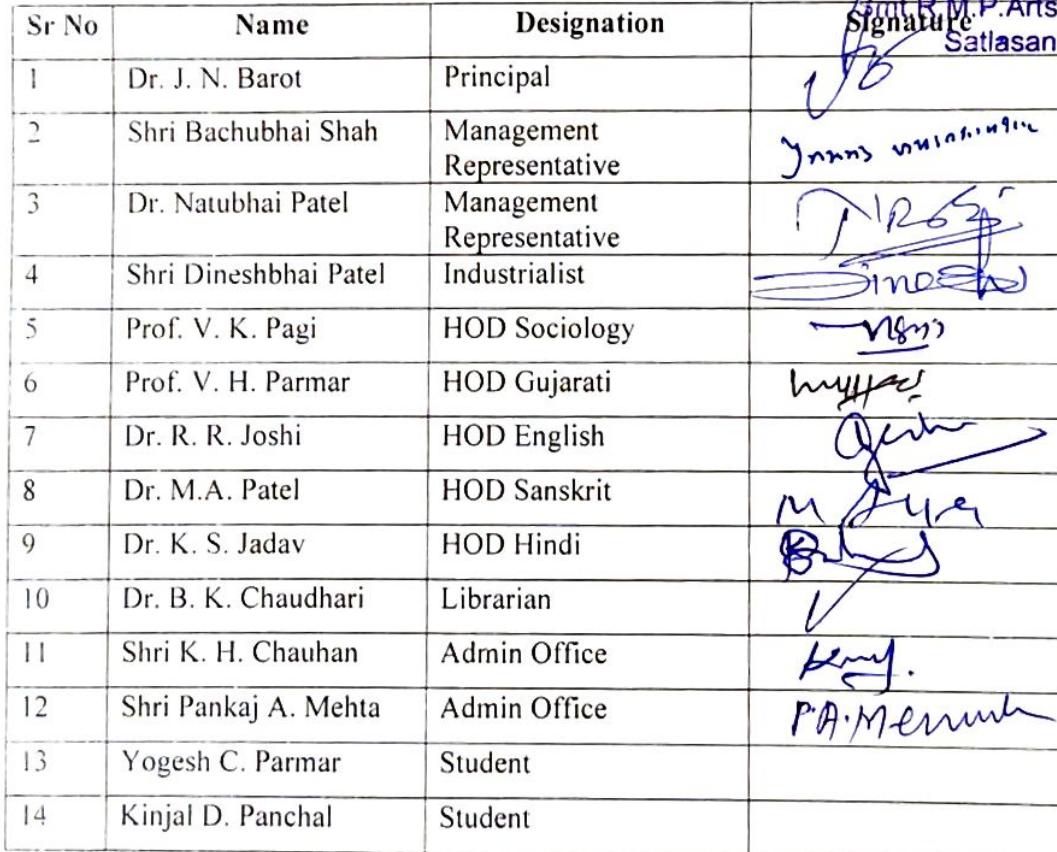 Smt. R.M.P. Arts
Satlasan
Sr No Name Designation Signature
1 Dr. J. N. Barot Principal
2 Shri Bachubhai Shah Management
Representative
3 Dr. Natubhai Patel Management
Representative
4 Shri Dineshbhai Patel Industrialist
5 Prof. V. K. Pagi HOD Sociology
6 Prof. V. H. Parmar HOD Gujarati
7 Dr. R. R. Joshi HOD English
8 Dr. M.A. Patel HOD Sanskrit
9 Dr. K. S. Jadav HOD Hindi
10 Dr. B. K. Chaudhari Librarian
11 Shri K. H. Chauhan Admin Office
12 Shri Pankaj A. Mehta Admin Office
13 Yogesh C. Parmar Student
14 Kinjal D. Panchal Student